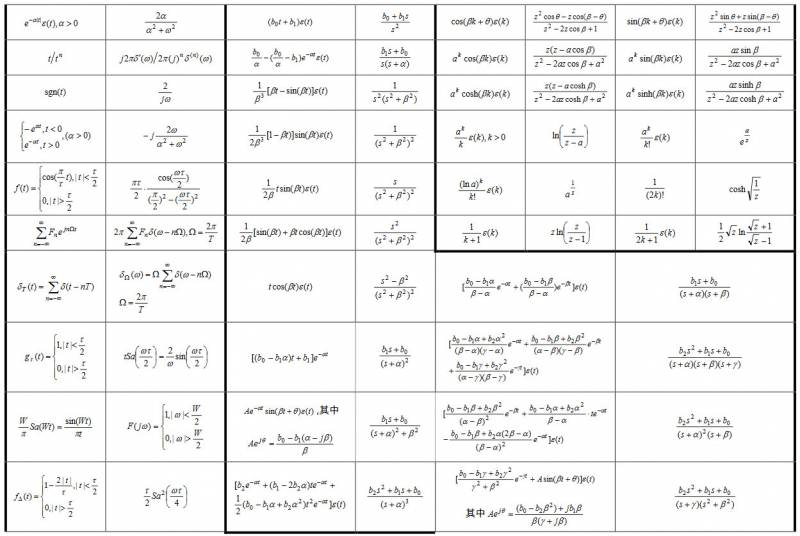 e^{-α|t|}ε(t), α > 0 | \frac{2α}{α²+ω²} | (b₀t + b₁)ε(t) | \frac{b₀+b₁s}{s²} | cos(βk+θ)ε(k) | \frac{z² cosθ − z cos(β−θ)}{z² − 2z cosβ + 1} | sin(βk+θ)ε(k) | \frac{z² sinθ + z sin(β−θ)}{z² − 2z cosβ + 1}
t/tⁿ | j2πδ'(ω)/2π(j)ⁿδ^{(n)}(ω) | \frac{b₀}{α} − (\frac{b₀}{α} − b₁)e^{-αt}ε(t) | \frac{b₁s+b₀}{s(s+α)} | a^k cos(βk)ε(k) | \frac{z(z − a cosβ)}{z² − 2az cosβ + a²} | a^k sin(βk)ε(k) | \frac{az sinβ}{z² − 2az cosβ + a²}
sgn(t) | \frac{2}{jω} | \frac{1}{β³}[βt − sin(βt)]ε(t) | \frac{1}{s²(s²+β²)} | a^k cosh(βk)ε(k) | \frac{z(z − a coshβ)}{z² − 2az coshβ + a²} | a^k sinh(βk)ε(k) | \frac{az sinhβ}{z² − 2az coshβ + a²}
{−e^{-αt}, t<0; e^{-αt}, t>0, (α>0) | −j\frac{2ω}{α²+ω²} | \frac{1}{2β³}[1−βt)]sin(βt)ε(t) | \frac{1}{(s²+β²)²} | \frac{a^k}{k}ε(k), k>0 | ln(\frac{z}{z−a}) | \frac{a^k}{k!}ε(k) | e^{\frac{a}{z}}
f(t) = {cos(\frac{π}{τ}t), |t|<\frac{τ}{2}; 0, |t|>\frac{τ}{2} | \frac{πτ}{2}·\frac{cos(\frac{ωτ}{2})}{(\frac{π}{2})² − (\frac{ωτ}{2})²} | \frac{1}{2β}t sin(βt)ε(t) | \frac{s}{(s²+β²)²} | \frac{(ln a)^k}{k!}ε(k) | a^{\frac{1}{z}} | \frac{1}{(2k)!} | cosh\sqrt{\frac{1}{z}}
\sum_{n=−∞}^{∞}F_n e^{jnΩt} | 2π\sum_{n=−∞}^{∞}F_nδ(ω−nΩ), Ω=\frac{2π}{T} | \frac{1}{2β}[sin(βt)+βt cos(βt)]ε(t) | \frac{s²}{(s²+β²)²} | \frac{1}{k+1}ε(k) | z ln(\frac{z}{z−1}) | \frac{1}{2k+1}ε(k) | \frac{1}{2}\sqrt{z} ln\frac{\sqrt{z}+1}{\sqrt{z}−1}
δ_T(t) = \sum_{n=−∞}^{∞}δ(t−nT) | δ_Ω(ω) = Ω\sum_{n=−∞}^{∞}δ(ω−nΩ) Ω=\frac{2π}{T} | t cos(βt)ε(t) | \frac{s²−β²}{(s²+β²)²} | [\frac{b₀−b₁α}{β−α}e^{-αt} + (\frac{b₀−b₁β}{β−α})e^{-βt}]ε(t) | \frac{b₁s+b₀}{(s+α)(s+β)}
g_τ(t) = {1, |t|<\frac{τ}{2}; 0, |t|>\frac{τ}{2} | τSa(\frac{ωτ}{2}) = \frac{2}{ω}sin(\frac{ωτ}{2}) | [(b₀−b₁α)t + b₁]e^{-αt} | \frac{b₁s+b₀}{(s+α)²} | [\frac{b₀−b₁α+b₂α²}{(β−α)(γ−α)}e^{-αt} + \frac{b₀−b₁β+b₂β²}{(α−β)(γ−β)}e^{-βt} + \frac{b₀−b₁γ+b₂γ²}{(α−γ)(β−γ)}e^{-γt}]ε(t) | \frac{b₂s²+b₁s+b₀}{(s+α)(s+β)(s+γ)}
\frac{W}{π}Sa(Wt) = \frac{sin(Wt)}{πt} | F(jω) = {1, |ω|<\frac{W}{2}; 0, |ω|>\frac{W}{2} | Ae^{-αt}sin(βt+θ)ε(t) ,其中 Ae^{jθ} = \frac{b₀−b₁(α−jβ)}{β} | \frac{b₁s+b₀}{(s+α)²+β²} | [\frac{b₀−b₁β+b₂β²}{(α−β)²}e^{-βt} + \frac{b₀−b₁α+b₂α²}{β−α}·te^{-αt} − \frac{b₀−b₁β+b₂α(2β−α)}{(β−α)²}e^{-αt}]ε(t) | \frac{b₂s²+b₁s+b₀}{(s+α)²(s+β)}
f_Δ(t) = {1−\frac{2|t|}{τ}, |t|<\frac{τ}{2}; 0, |t|>\frac{τ}{2} | \frac{τ}{2}Sa²(\frac{ωτ}{4}) | [b₂e^{-αt} + (b₁−2b₂α)te^{-αt} + \frac{1}{2}(b₀−b₁α+b₂α²)t²e^{-αt}]ε(t) | \frac{b₂s²+b₁s+b₀}{(s+α)³} | [\frac{b₀−b₁γ+b₂γ²}{γ²+β²}e^{-γt} + A sin(βt+θ)]ε(t) 其中 Ae^{jθ} = \frac{(b₀−b₂β²)+jb₁β}{β(γ+jβ)} | \frac{b₂s²+b₁s+b₀}{(s+γ)(s²+β²)}